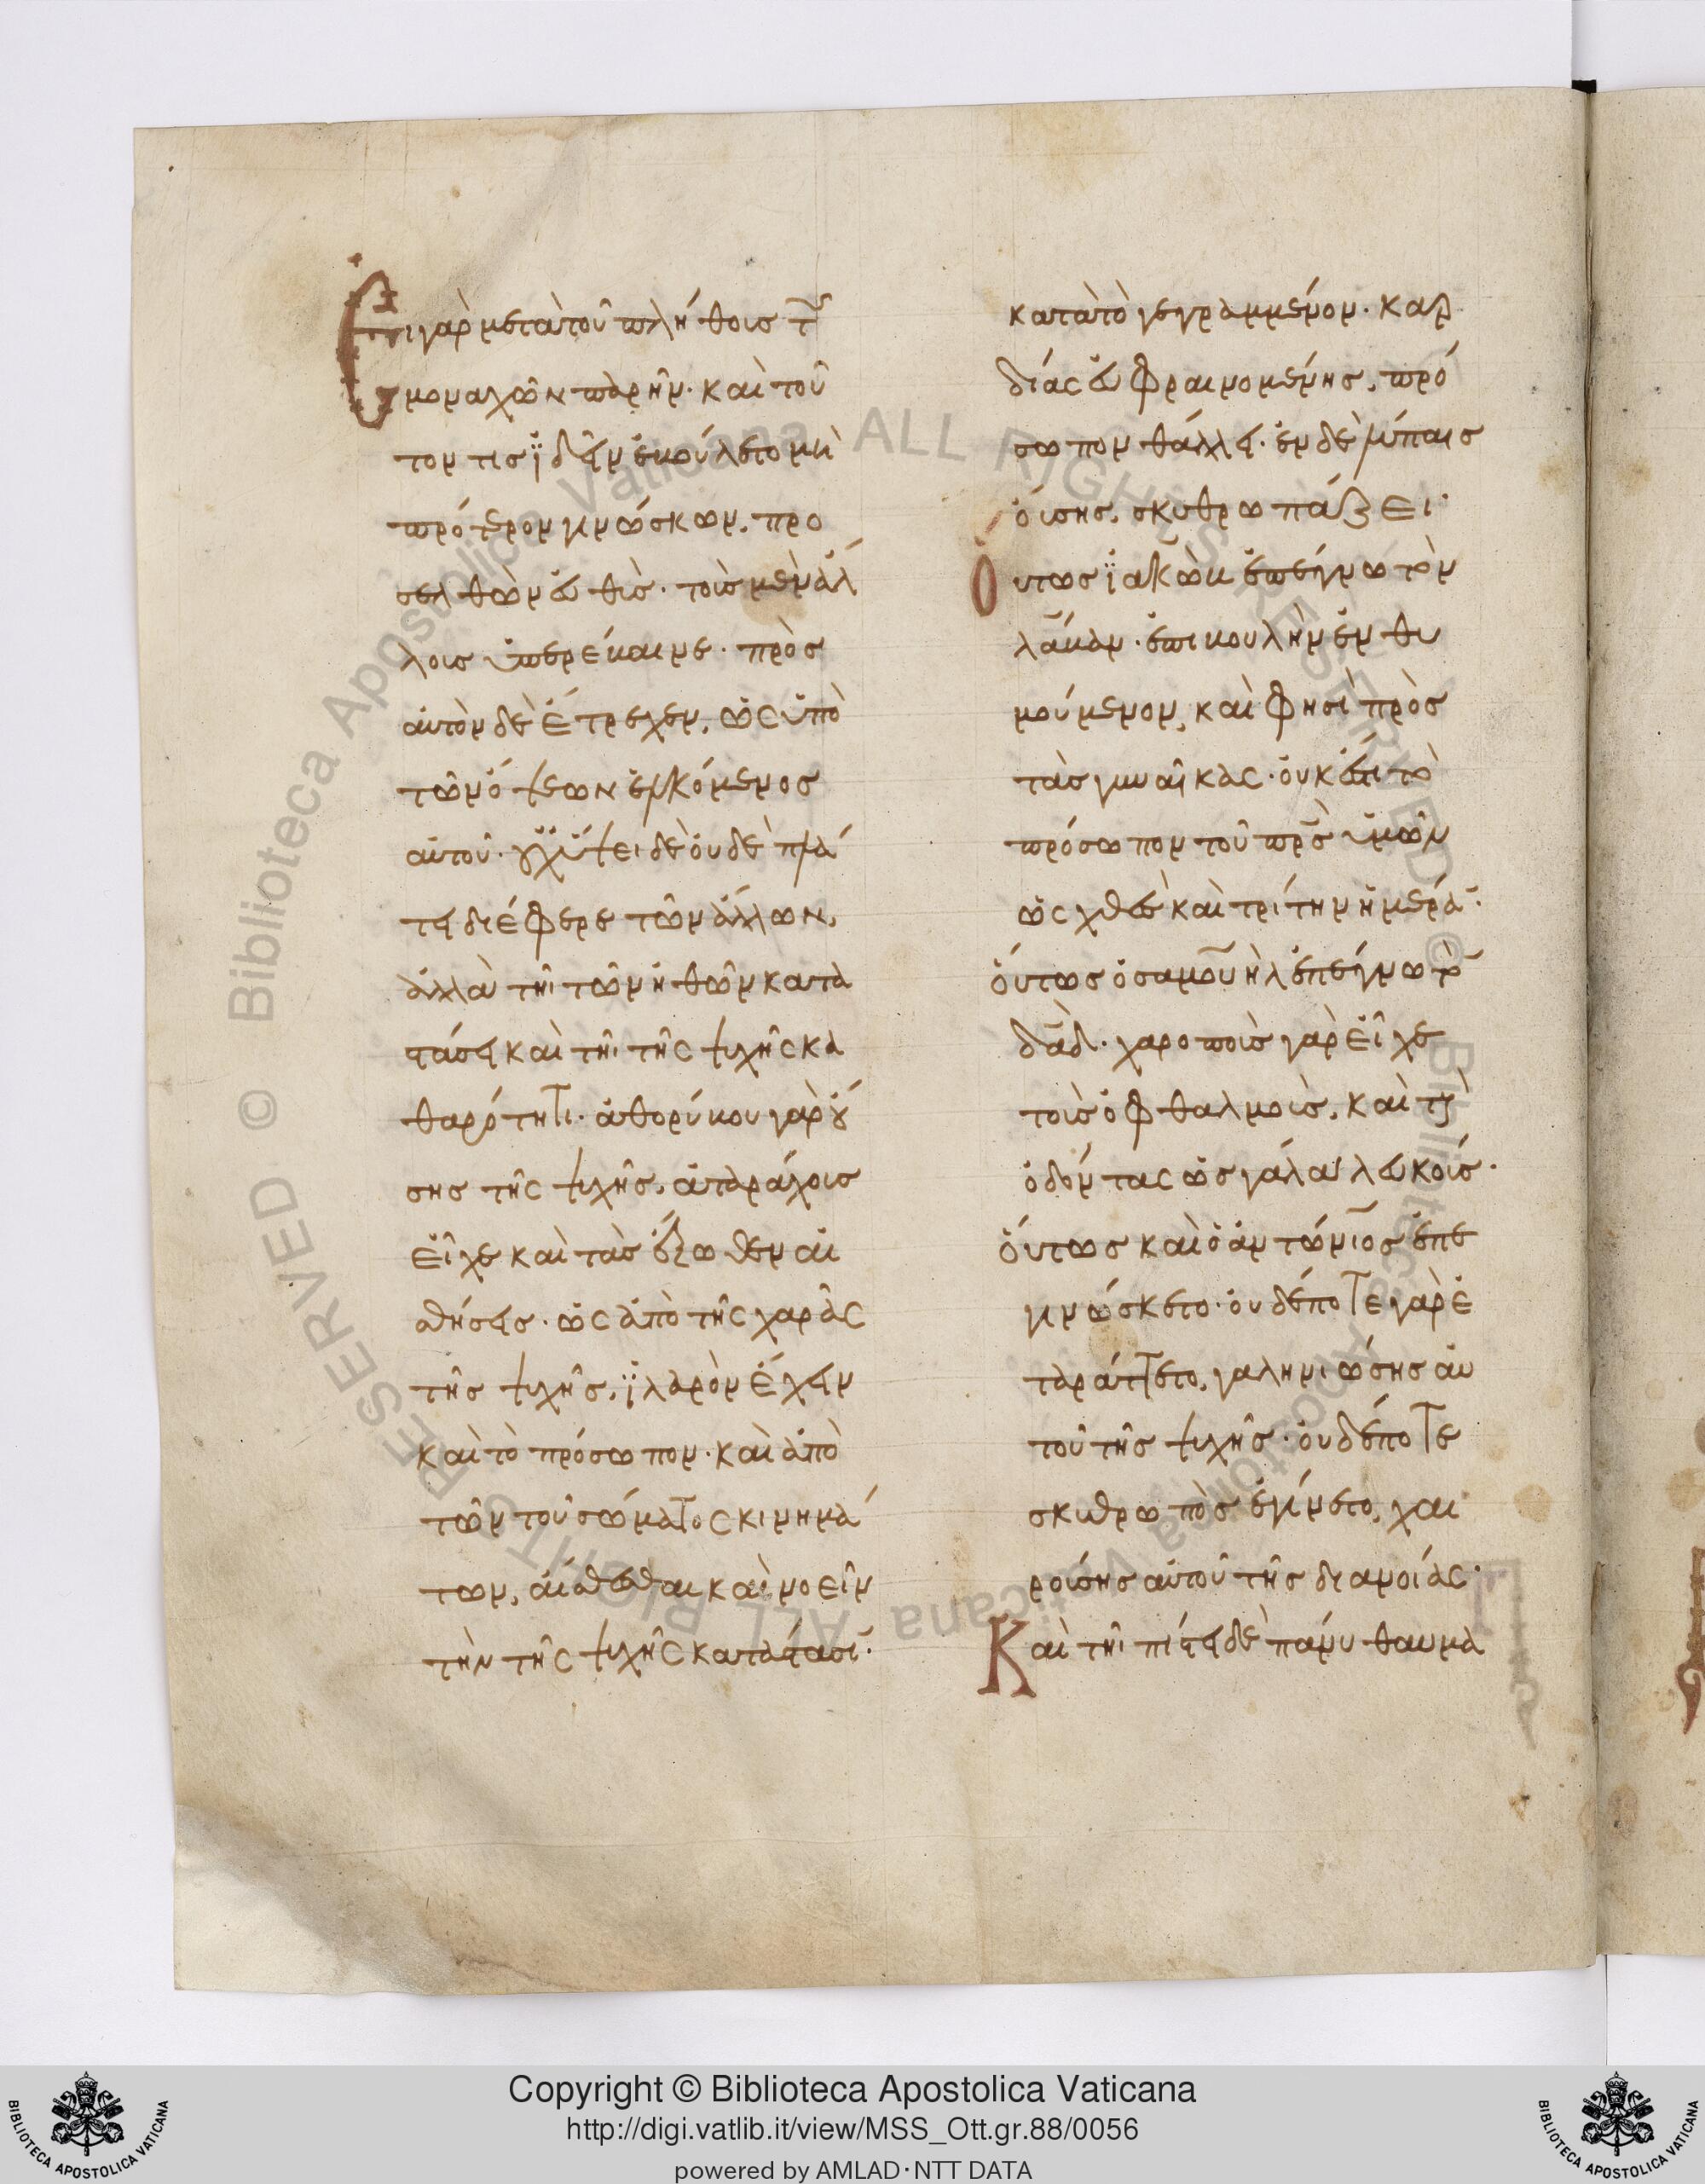 Εἰ γὰρ μετὰ τοῦ πλήθους τῶ
μοναχῶν παρῆν· καὶ τοῦ
τον τις ϊδεῖν ἐβούλετο μὴ
πρότερον γινώσκων, προ
σελθὼν εὐθὺς· τοὺς μὲν ἄλ
λους ὑπερέβαινε· πρὸς
αὐτὸν δὲ ἔτρεχεν, ὡς ὑπὸ
τῶν ὄψεων ἑλκόμενος
αὐτοῦ· οὐχ ὕψει δὲ οὐδὲ πλά
τει διέφερε τῶν ἄλλων,
ἀλλὰ τῆι τῶν ἠθῶν κατα
στάσει καὶ τῆι τῆς ψυχῆς κα
θαρότητι· ἀθορύβου γὰρ οὔ
σης τῆς ψυχῆς, ἀταράχους
εἶχε καὶ τὰς ἔξωθεν αἰ
σθήσεις· ὡς ἀπὸ τῆς χαρᾶς
τῆς ψυχῆς, ϊλαρὸν ἔχειν
καὶ τὸ πρόσωπον· καὶ ἀπὸ
τῶν τοῦ σώματος κινημά
των, αἰσθέσθαι καὶ νοεῖν
τὴν τῆς ψυχῆς κατάστασϊ·
κατὰ τὸ γεγραμμένον· καρ
δίας εὐφραινομένης, πρό
σωπον θάλλει· ἐν δὲ λύπαις
οὔσης, σκυθρωπάζει·
Οὕτως ϊακὼβ ἐπέγνω τὸν
λάβαν· ἐπιβουλὴν ἐνθυ
μούμενον, καὶ φησὶ πρὸς
τὰς γυναῖκας· οὐκ ἔστι τὸ
πρόσωπον τοῦ πρς ὑμῶν
ὡς χθὲς καὶ τρίτην ἡμέρα·
οὕτως ὁ σαμουὴλ ἐπέγνω τὸ
δαδ· χαροποιοὺς γὰρ εἶχε
τοὺς ὀφθαλμοὺς, καὶ τοὺς
ὀδόντας ὡς γάλα λευκούς·
οὕτως καὶ ὁ ἀντώνϊος ἐπε
γινώσκετο· οὐδέποτε γὰρ ἐ
ταράττετο, γαληνιώσης αὐ
τοῦ τῆς ψυχῆς· οὐδέποτε
σκυθρωπὸς ἐγίνετο, χαι
ρούσης αὐτοῦ τῆς διανοίας·
Καὶ τῆι πίστει δὲ πάνυ θαυμα
Copyright © Biblioteca Apostolica Vaticana
http://digi.vatlib.it/view/MSS_Ott.gr.88/0056
powered by AMLAD·NTT DATA